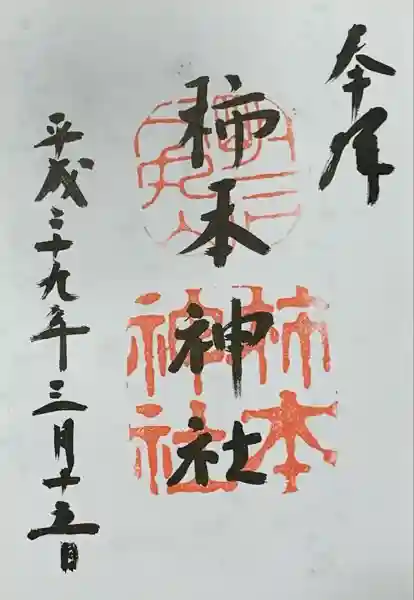 奉拝
柿本神社
平成二十九年三月十五日
明石
人丸山
柿本
神社